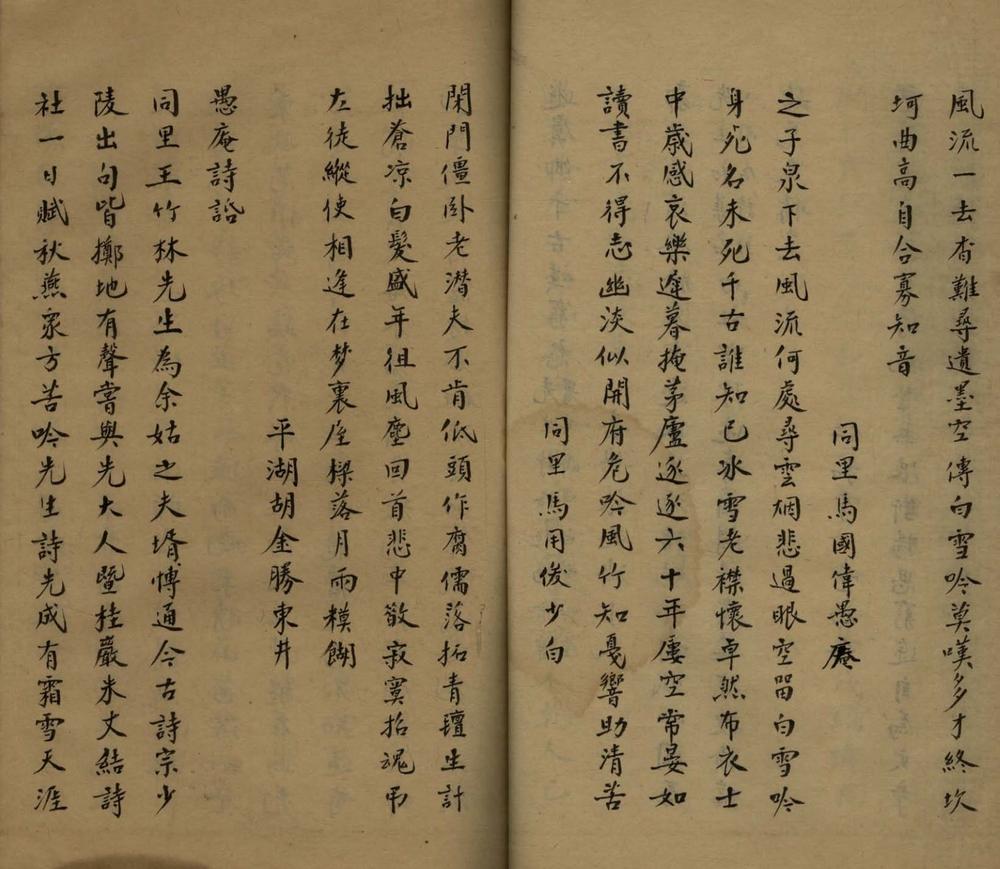 風流一去杳難尋遺墨空傳白雪吟莫嘆多才終坎
坷曲高自合寡知音
同里馬國偉愚庵
之子泉下去風流何處尋雲烟悲過眼空留白雪吟
身死名未死千古誰知己冰雪老襟懷卓然布衣士
中歲感哀樂遂暮掩茅廬逐逐六十年屢空常晏如
讀書不得志幽淡似開府危吟風竹知戞響助清苦
同里馬用俊少白
閑門僵卧老潛夫不肯低頭作腐儒落拓青氊生計
拙蒼凉白髮盛年徂風塵回首悲中散寂寞招魂弔
左徒縱使相逢在梦裏屋樑落月雨糢餬
平湖胡金勝東井
愚庵詩話
同里王竹林先生為余姑之夫壻博通今古詩宗少
陵出句皆擲地有聲嘗與先大人暨桂巖朱丈結詩
社一日賦秋燕衆方苦吟先生詩先成有霜雪天涯